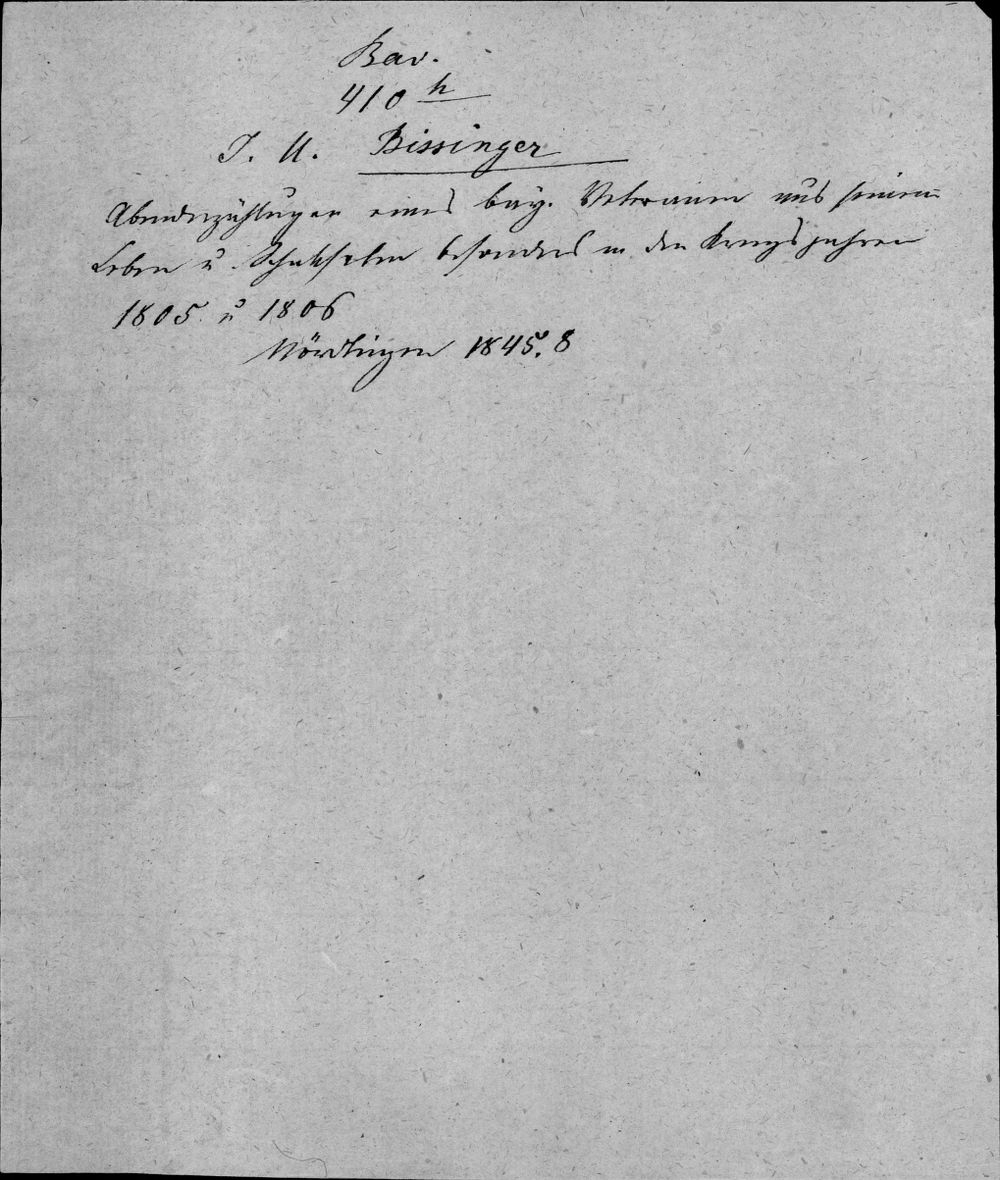 Bav.
410 h
J. U. Bissinger
Abenderzählungen eines bay. Veteranen aus seinem
Leben u. Schicksalen besonders in den Kriegsjahren
1805 u 1806
Nördlingen 1845. 8